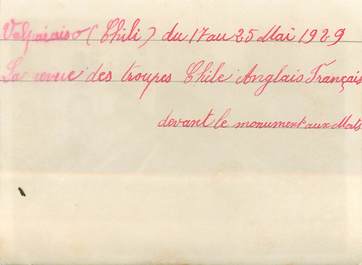 Valparaiso (Chili) du 17 au 25 Mai 1929
La revue des troupes Chile Anglais Français
devant le monument aux Morts